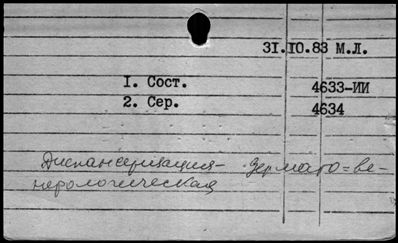 31.10.83 М.Л.
1. Сост. 4633-ИИ
2. Сер. 4634
Диспансеризация- дермато=ве-
нерологическая